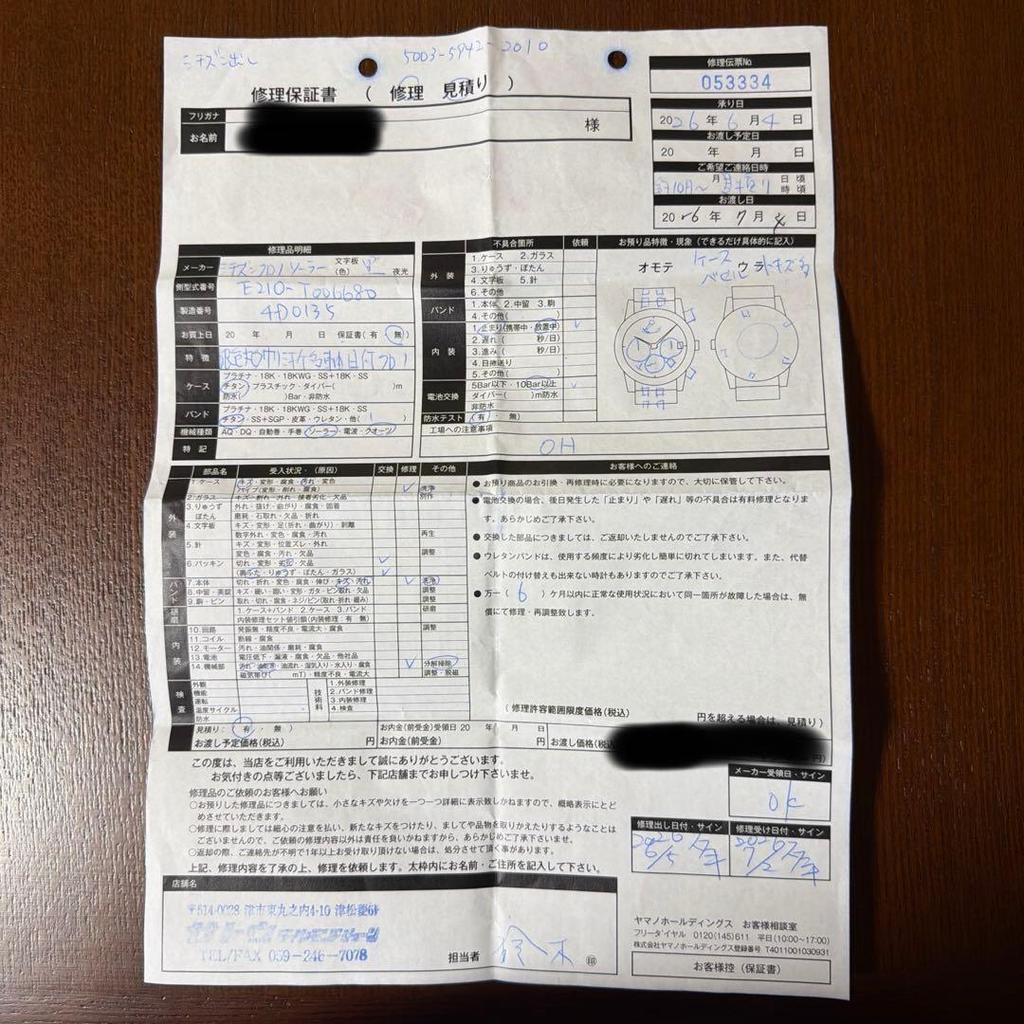 5003-5942-2010
修理伝票No
053334
修理保証書 ( 修理 見積り )
フリガナ
お名前
様
承り日
2026年6月4日
お渡し予定日
20 年 月 日
ご希望ご連絡日時
月 日 頃
時 頃
お渡し日
2026年7月 日
修理品明細
メーカー
文字板
(色)
夜光
側型式番号
E210-T006680
製造番号
4D0135
お買上日 20 年 月 日 保証書(有 無)
特徴
ケース
プラチナ・18K・18KWG・SS+18K・SS
チタン・プラスチック・ダイバー( )m
防水( )Bar・非防水
バンド
プラチナ・18K・18KWG・SS+18K・SS
チタン・SS+SGP・皮革・ウレタン・他( )
機械種類 AQ・DQ・自動巻・手巻・ソーラー・電波・クオーツ
特記
不具合箇所
依頼
外装
1.ケース 2.ガラス
3.りゅうず・ぼたん
4.文字板 5.針
6.その他
バンド
1.本体 2.中留 3.駒
4.その他( )
内装
1.止まり(携帯中・放置中)
2.遅れ( 秒/日)
3.進み( 秒/日)
4.日捲送り
5.その他( )
電池交換
5Bar以下・10Bar以上
ダイバー( )m防水
非防水
防水テスト (有・無)
工場への注意事項
OH
お預り品特徴・現象(できるだけ具体的に記入)
オモテ
ウラ
ケース
部品名 受入状況・(原因) 交換 修理 その他
外装
1.ケース キズ・変形・腐食・汚れ・変色
パイプ(変形・削れ・腐食) 洗浄
2.ガラス キズ・割れ・外れ・接着劣化・欠品 別作
3.りゅうず 外れ・抜け・曲がり・腐食・固着
ぼたん 磨耗・石取れ・欠品・折れ
4.文字板 キズ・変形・足(折れ・曲がり)・剥離
数字外れ・変色・腐食・汚れ 再生
5.針 キズ・変形・位置ズレ・外れ
変色・腐食・汚れ・欠品 調整
6.パッキン 切れ・変形・劣化・欠品
(裏ぶた・りゅうず・ぼたん・ガラス)
バンド
7.本体 切れ・折れ・変色・腐食・伸び・キズ・汚れ 洗浄
8.中留・美錠 キズ・緩い・固い・変形・ガタ・ピン取れ・欠品 調整
9.駒・ピン 取れ・切れ・腐食・ネジ/ピン(取れ・折れ・緩み) 調整
研磨
1.ケース+バンド 2.ケース 3.バンド 研磨
内装修理セット値引額(内装修理:有 無)
内装
10.回路 発振無・精度不良・電流大・腐食 調整
11.コイル 断線・腐食
12.モーター 汚れ・油関係・磨耗・腐食
13.電池 電圧低下・漏液・腐食・欠品・他社品
14.機械部 汚れ・油劣化・油流れ・湿気入り・水入り・腐食 分解掃除
磁気帯び( mT)・精度不良・電流大 調整・脱磁
検査
外観
機能
運転
温度サイクル
防水
技術料
1.外装修理
2.バンド修理
3.内装修理
4.検査
お客様へのご連絡
● お預り商品のお引換・再修理時に必要になりますので、大切に保管して下さい。
● 電池交換の場合、後日発生した「止まり」や「遅れ」等の不具合は有料修理となります。あらかじめご了承下さい。
● 交換した部品につきましては、ご返却いたしませんのでご了承下さい。
● ウレタンバンドは、使用する頻度により劣化し簡単に切れてしまいます。また、代替
ベルトの付け替えも出来ない時計もありますのでご了承下さい。
● 万一( 6 )ケ月以内に正常な使用状況において同一箇所が故障した場合は、無
償にて修理・再調整致します。
(修理許容範囲限度価格(税込) 円を超える場合は、見積り)
見積り:(有・無)
お内金(前受金)受領日 20 年 月 日
お渡し予定価格(税込) 円
お内金(前受金) 円
お渡し価格(税込)
円)
この度は、当店をご利用いただきまして誠にありがとうございます。
お気付きの点等ございましたら、下記店舗までお申しつけ下さいませ。
修理品のご依頼のお客様へお願い
○お預りした修理品につきましては、小さなキズや欠けを一つ一つ詳細に表示致しかねますので、概略表示にとど
めさせていただきます。
○修理に際しましては細心の注意を払い、新たなキズをつけたり、ましてや品物を取りかえたりするようなことは
ございませんので、ご依頼の修理内容以外は責任を負いかねますから、あらかじめご了承下さいませ。
○返却の際、ご連絡先が不明で1年以上お受け取り頂けない場合は、処分させて頂く事があります。
上記、修理内容を了承の上、修理を依頼します。太枠内にお名前・ご住所を記入して下さい。
メーカー受領日・サイン
OK
修理出し日付・サイン
2026
6/5
修理受け日付・サイン
2026
7/2
店舗名
〒514-0028 津市東丸之内4-10 津松菱6F
TEL/FAX 059-246-7078
担当者 鈴木 印
ヤマノホールディングス お客様相談室
フリーダイヤル 0120(145)611 平日(10:00~17:00)
株式会社ヤマノホールディングス登録番号 T4011001030931
お客様控(保証書)